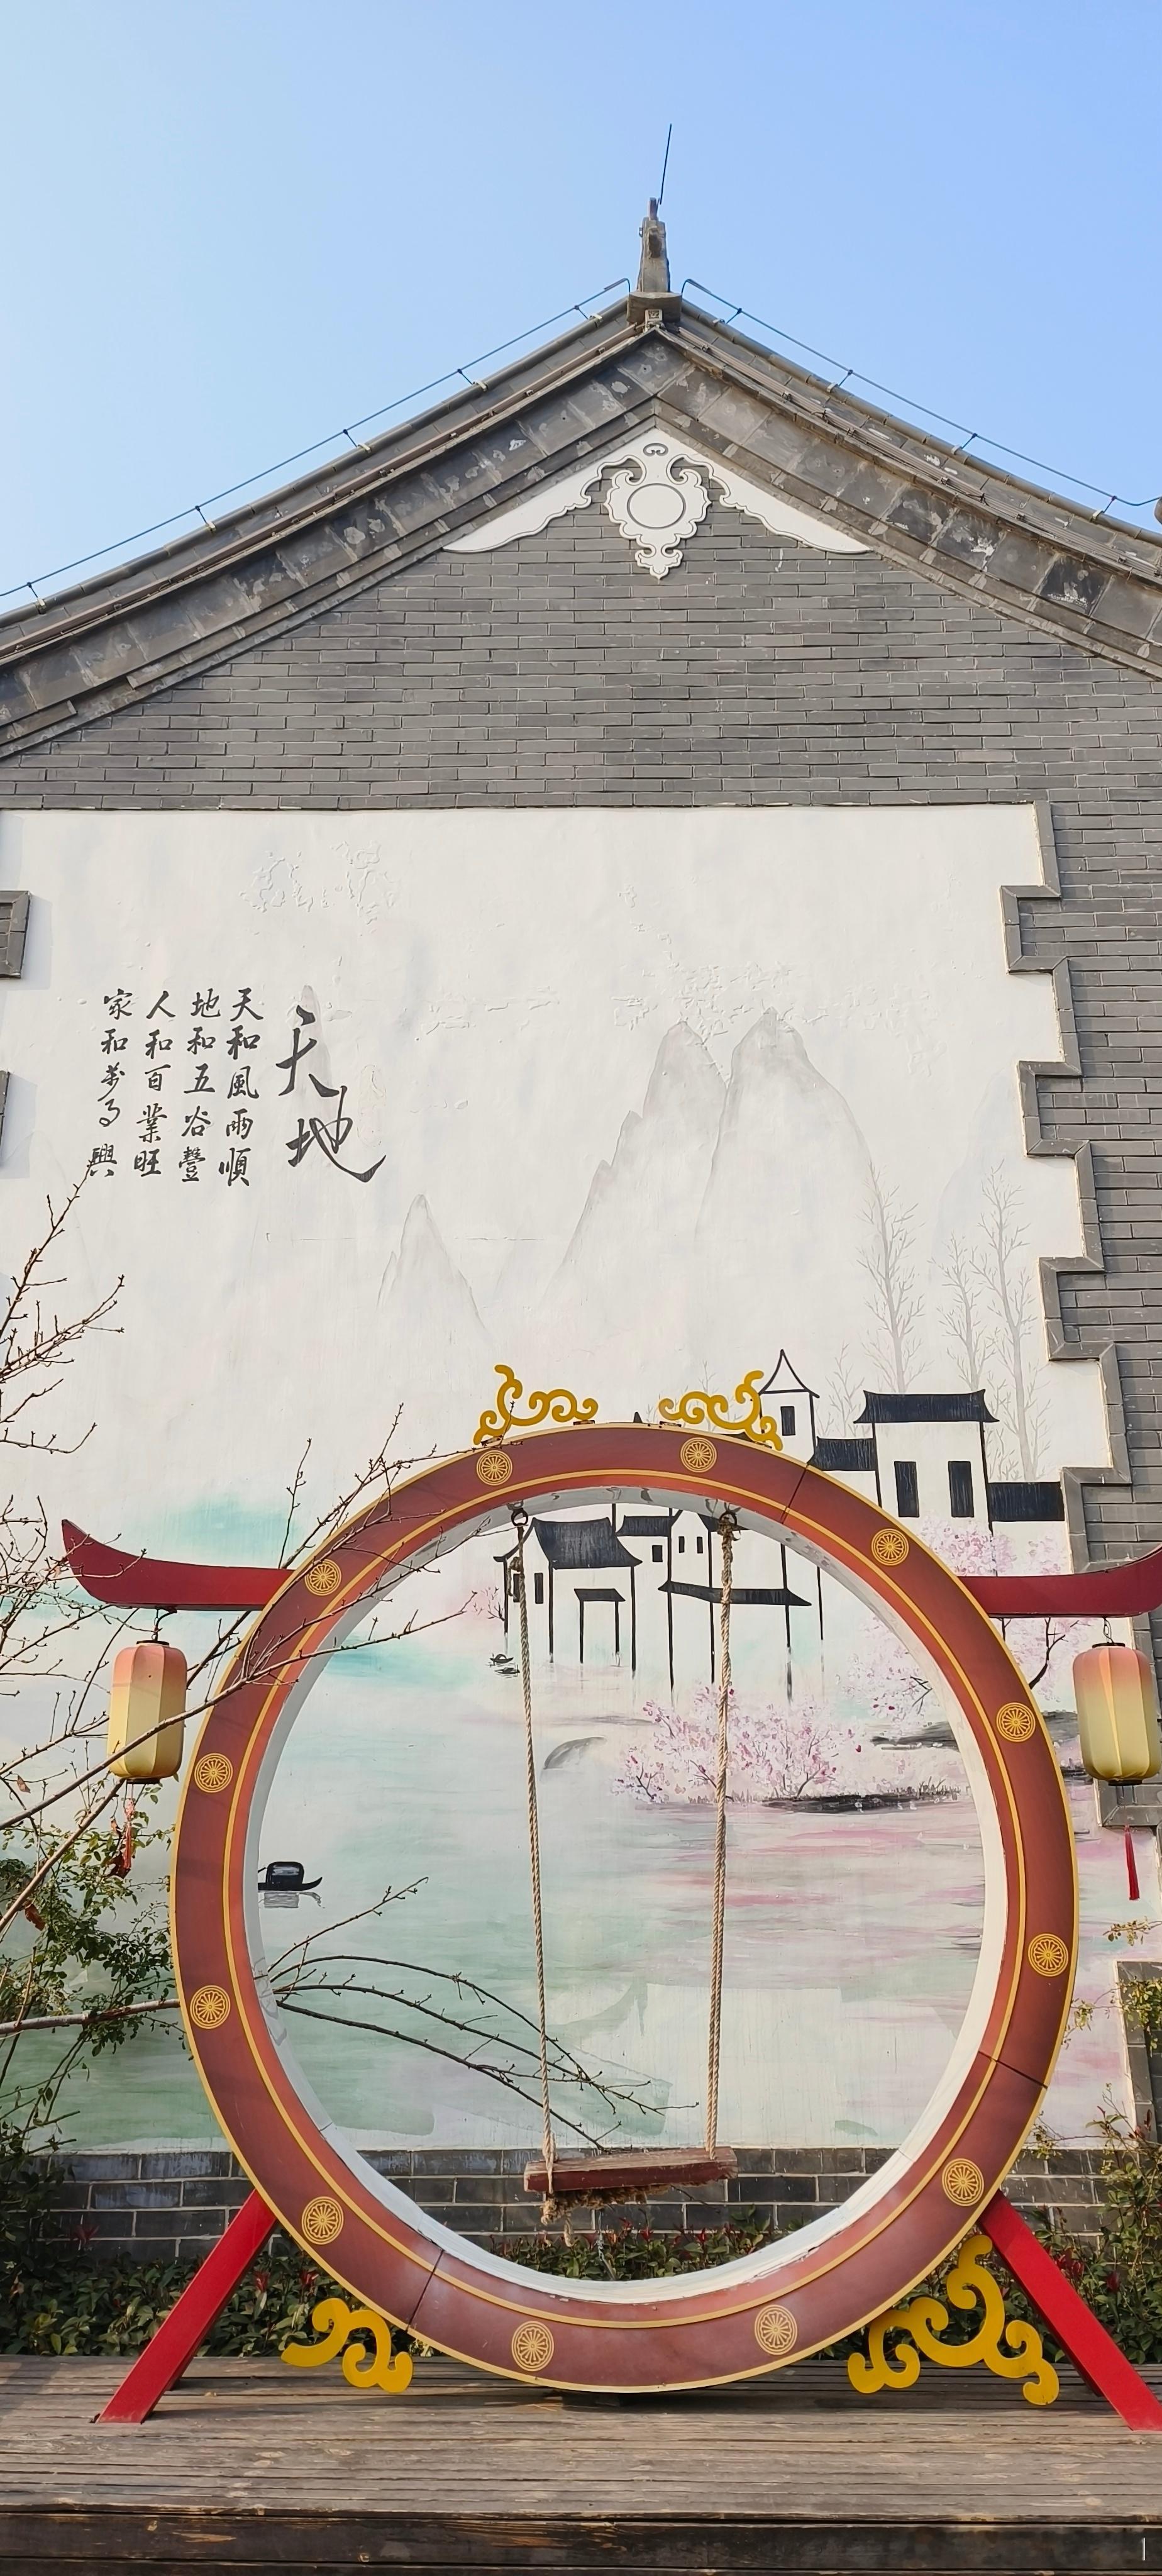 天地
天和風雨順
地和五谷豐
人和百業旺
家和萬事興